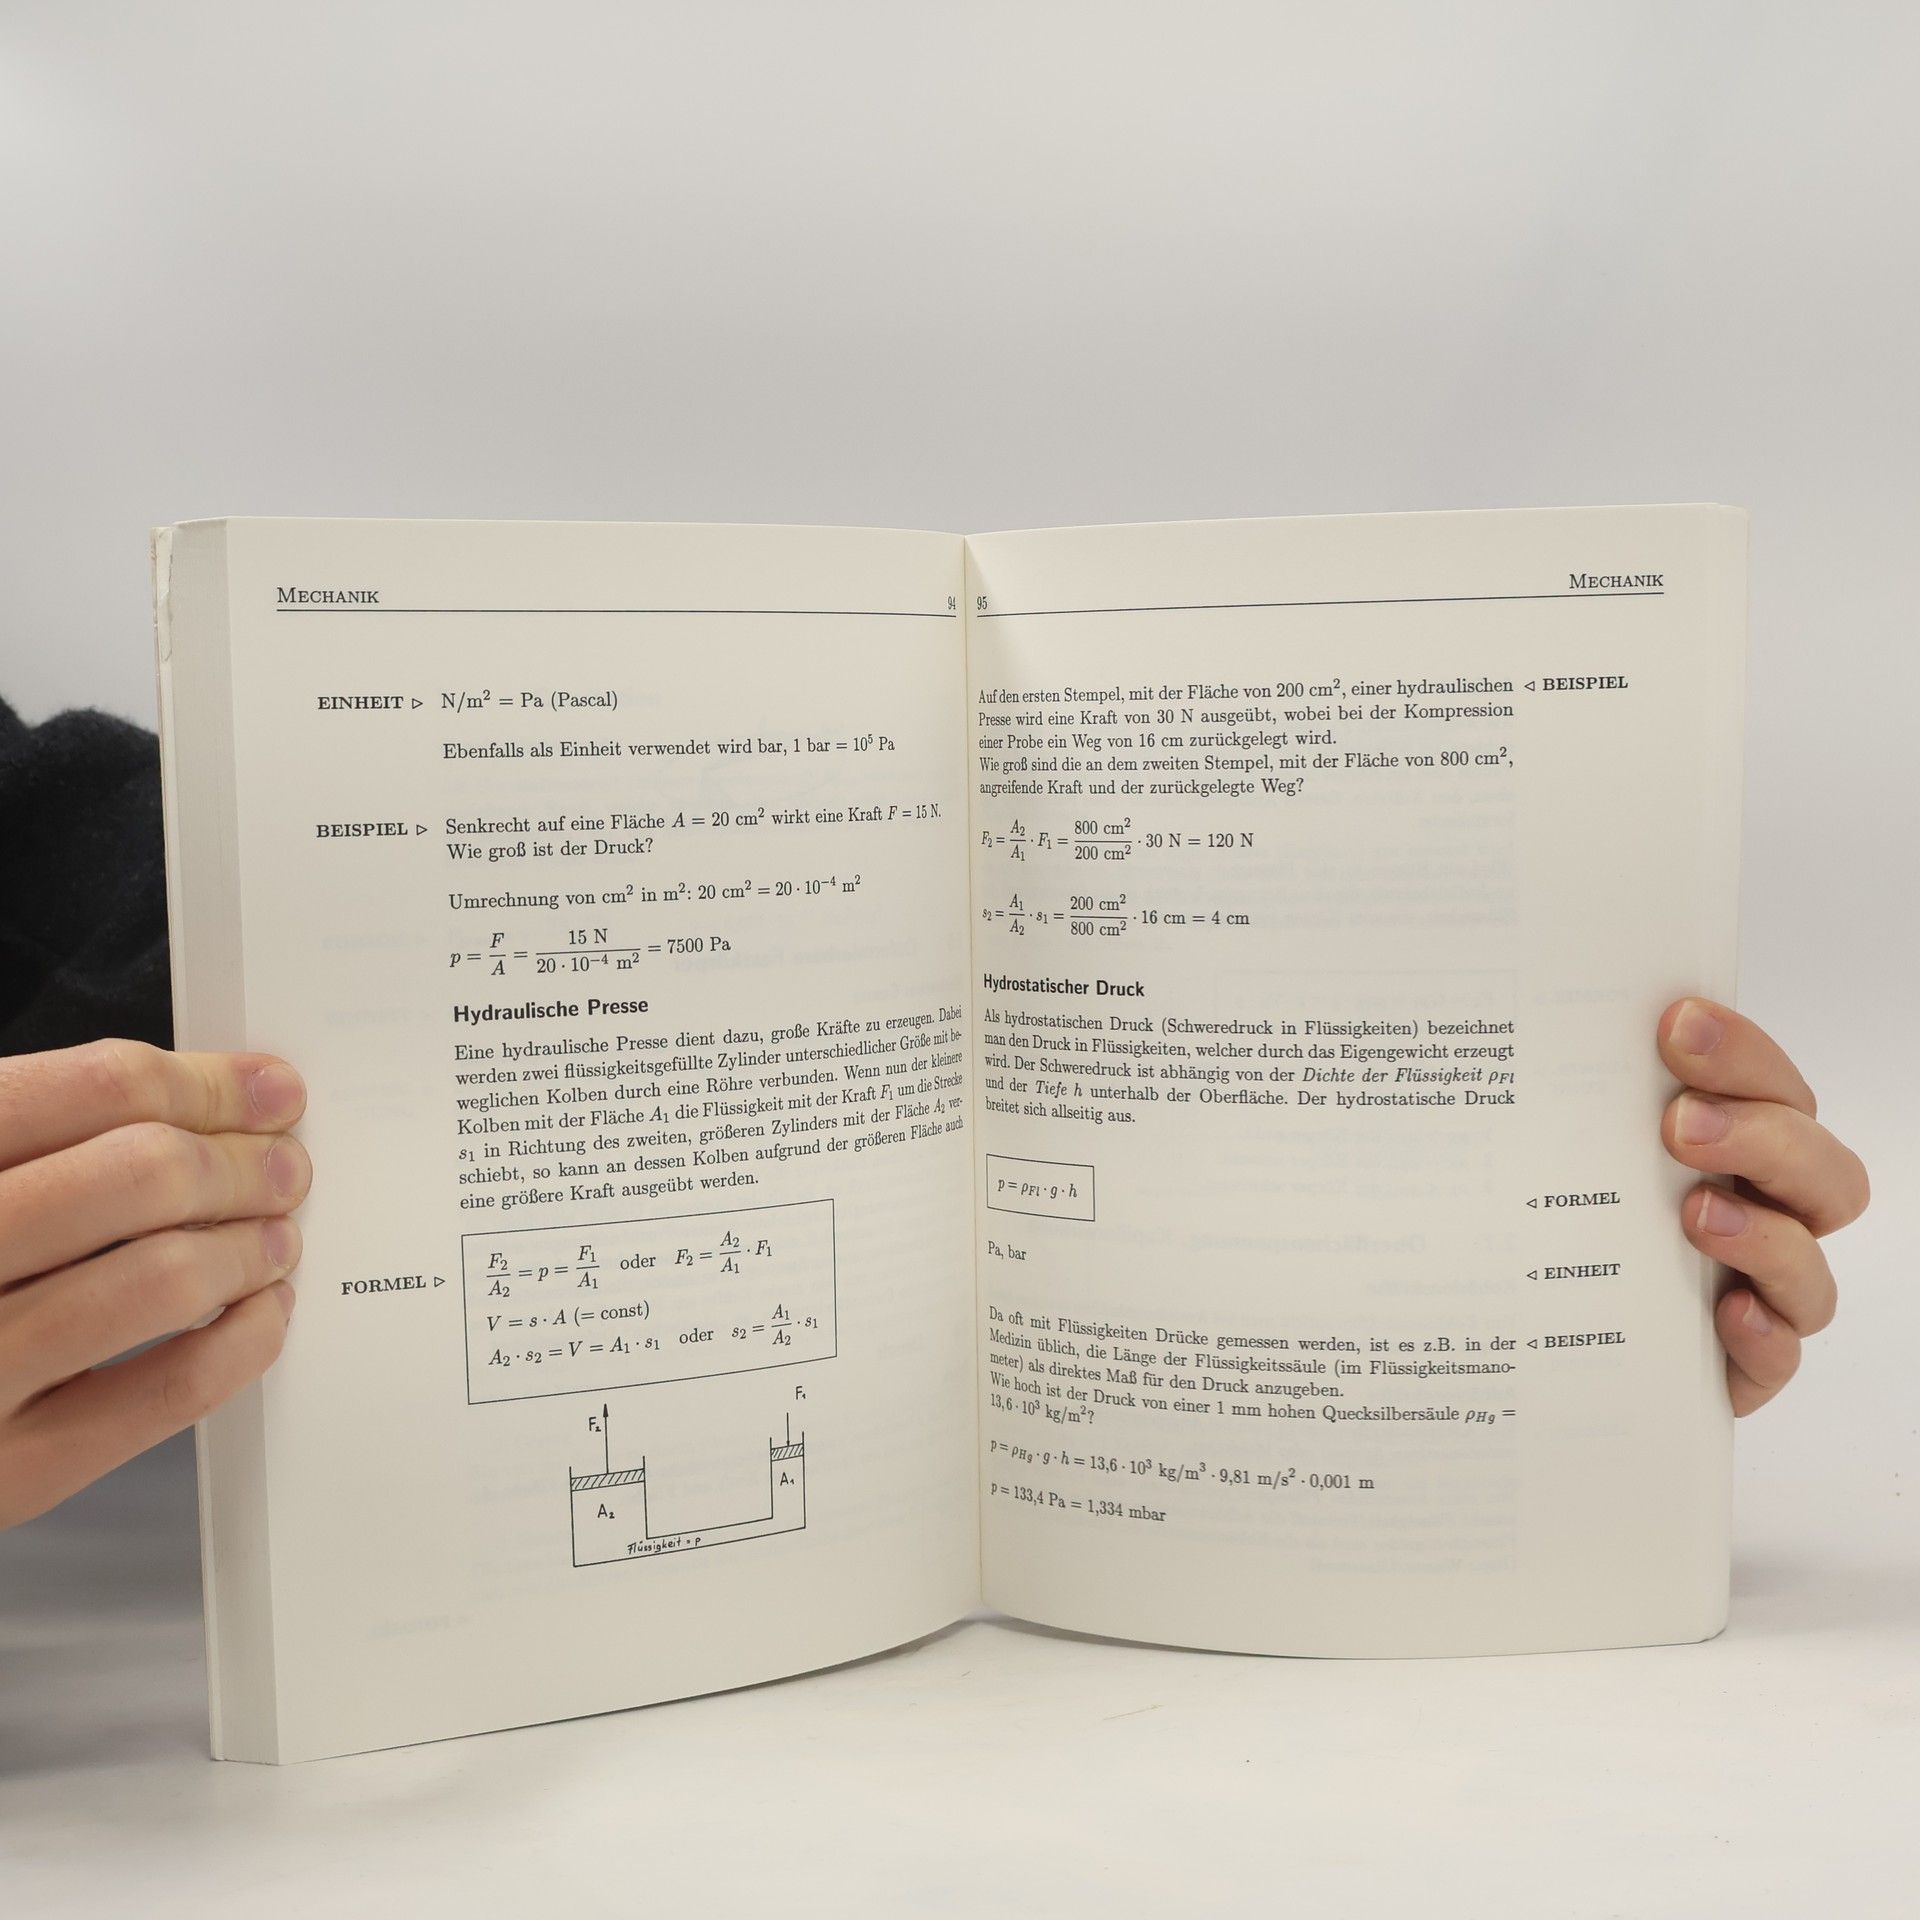 MECHANIK 94
EINHEIT ▷ N/m² = Pa (Pascal)
Ebenfalls als Einheit verwendet wird bar, 1 bar = 10⁵ Pa
BEISPIEL ▷ Senkrecht auf eine Fläche A = 20 cm² wirkt eine Kraft F = 15 N.
Wie groß ist der Druck?
Umrechnung von cm² in m²: 20 cm² = 20 · 10⁻⁴ m²
p = F/A = 15 N / 20 · 10⁻⁴ m² = 7500 Pa
Hydraulische Presse
Eine hydraulische Presse dient dazu, große Kräfte zu erzeugen. Dabei
werden zwei flüssigkeitsgefüllte Zylinder unterschiedlicher Größe mit be-
weglichen Kolben durch eine Röhre verbunden. Wenn nun der kleinere
Kolben mit der Fläche A₁ die Flüssigkeit mit der Kraft F₁ um die Strecke
s₁ in Richtung des zweiten, größeren Zylinders mit der Fläche A₂ ver-
schiebt, so kann an dessen Kolben aufgrund der größeren Fläche auch
eine größere Kraft ausgeübt werden.
FORMEL ▷
F₂/A₂ = p = F₁/A₁ oder F₂ = A₂/A₁ · F₁
V = s · A (= const)
A₂ · s₂ = V = A₁ · s₁ oder s₂ = A₁/A₂ · s₁
F₂ F₁
A₂ A₁
Flüssigkeit = p
95 MECHANIK
Auf den ersten Stempel, mit der Fläche von 200 cm², einer hydraulischen ◁ BEISPIEL
Presse wird eine Kraft von 30 N ausgeübt, wobei bei der Kompression
einer Probe ein Weg von 16 cm zurückgelegt wird.
Wie groß sind die an dem zweiten Stempel, mit der Fläche von 800 cm²,
angreifende Kraft und der zurückgelegte Weg?
F₂ = A₂/A₁ · F₁ = 800 cm²/200 cm² · 30 N = 120 N
s₂ = A₁/A₂ · s₁ = 200 cm²/800 cm² · 16 cm = 4 cm
Hydrostatischer Druck
Als hydrostatischen Druck (Schweredruck in Flüssigkeiten) bezeichnet
man den Druck in Flüssigkeiten, welcher durch das Eigengewicht erzeugt
wird. Der Schweredruck ist abhängig von der Dichte der Flüssigkeit ρFl
und der Tiefe h unterhalb der Oberfläche. Der hydrostatische Druck
breitet sich allseitig aus.
p = ρFl · g · h ◁ FORMEL
Pa, bar ◁ EINHEIT
Da oft mit Flüssigkeiten Drücke gemessen werden, ist es z.B. in der ◁ BEISPIEL
Medizin üblich, die Länge der Flüssigkeitssäule (im Flüssigkeitsmano-
meter) als direktes Maß für den Druck anzugeben.
Wie hoch ist der Druck von einer 1 mm hohen Quecksilbersäule ρHg =
13,6 · 10³ kg/m²?
p = ρHg · g · h = 13,6 · 10³ kg/m³ · 9,81 m/s² · 0,001 m
p = 133,4 Pa = 1,334 mbar